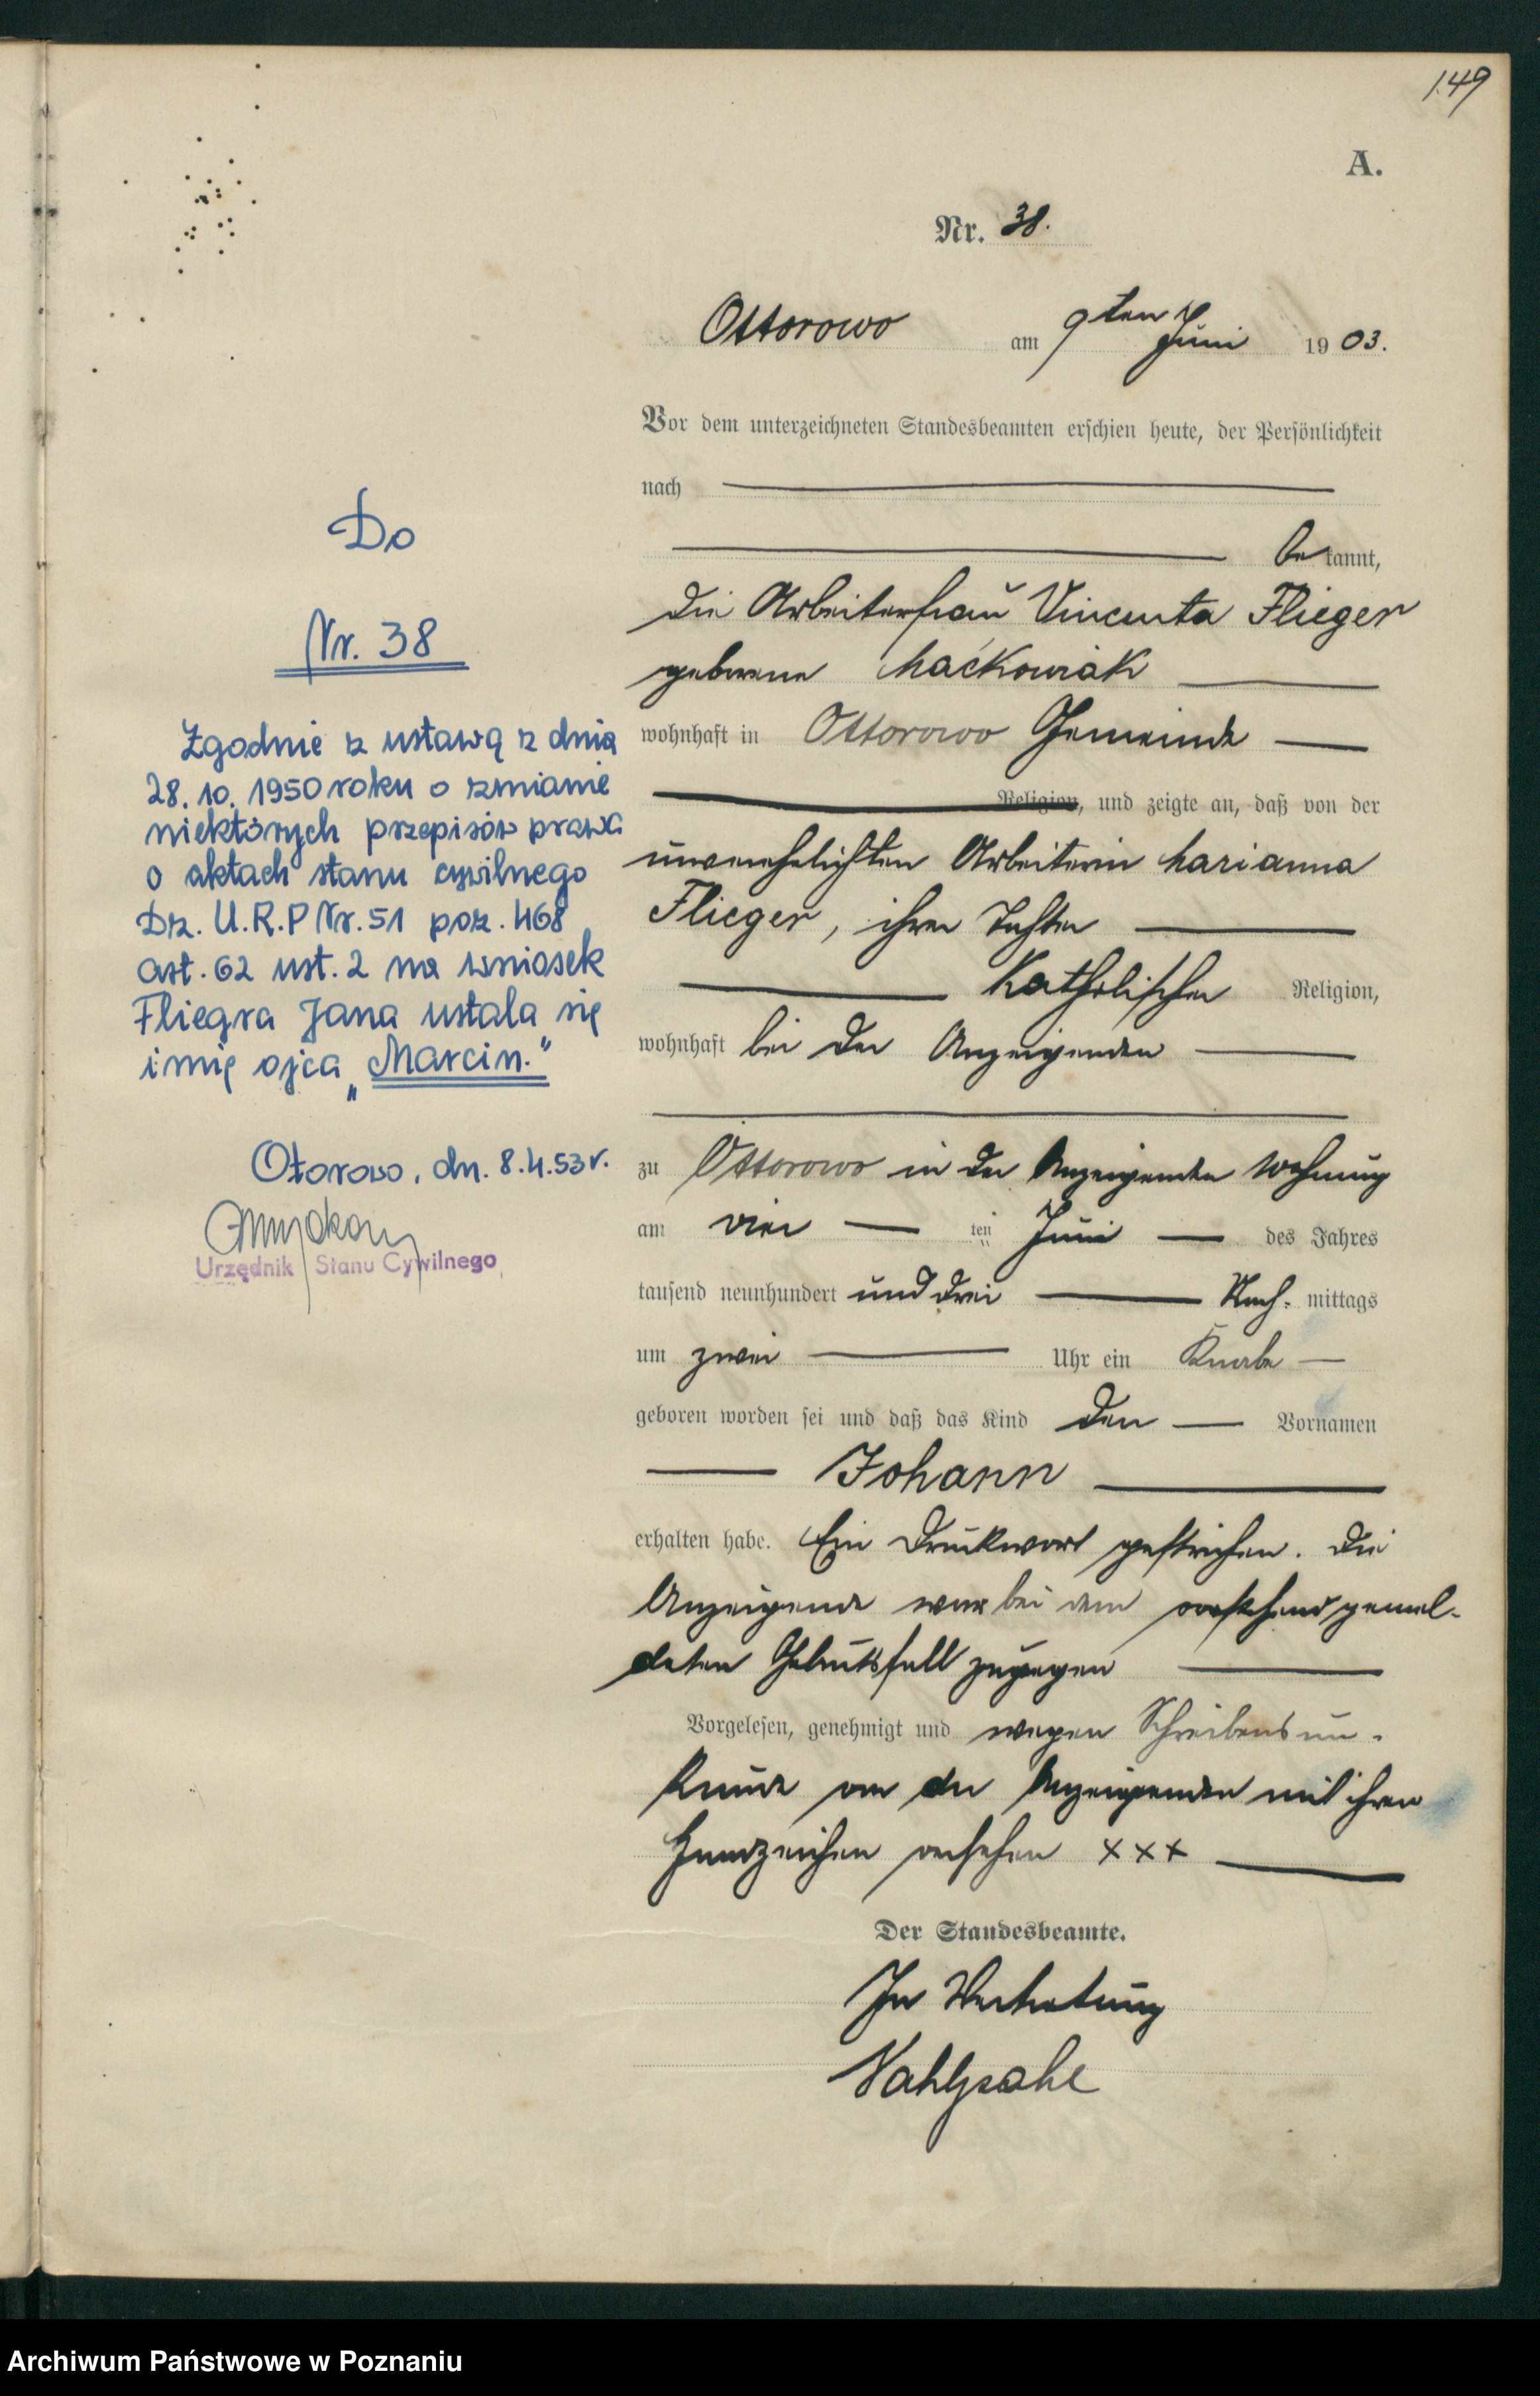 149
A.
Nr. 38.
Ottorowo am 9ten Juni 1903.
Vor dem unterzeichneten Standesbeamten erschien heute, der Persönlichkeit
nach
bekannt,
die Arbeiterfrau Vincenta Flieger
geborene Maćkowiak
wohnhaft in Ottorowo Gemeinde
Religion, und zeigte an, daß von der
unverehelichten Arbeiterin Marianna
Flieger, ihrer Tochter
Katholischer Religion,
wohnhaft bei der Anzeigenden
zu Ottorowo in der Anzeigenden Wohnung
am vier ten Juni des Jahres
tausend neunhundert und drei Nach-mittags
um zwei Uhr ein Knabe
geboren worden sei und daß das Kind den Vornamen
Johann
erhalten habe. Ein Druckwort gestrichen. Die
Anzeigende war bei dem vorstehend gemel-
deten Geburtsfall zugegen
Vorgelesen, genehmigt und wegen Schreibensun-
kunde von der Anzeigenden mit ihren
Handzeichen versehen XXX
Der Standesbeamte.
In Vertretung
Do
Nr. 38
Zgodnie z ustawą z dnia
28.10.1950 roku o zmianie
niektórych przepisów prawa
o aktach stanu cywilnego
Dz. U.R.P Nr. 51 poz. 468
art. 62 ust. 2 na wniosek
Fliegra Jana ustala się
imię ojca „Marcin."
Otorowo, dn. 8.4.53 r.
Urzędnik Stanu Cywilnego
Archiwum Państwowe w Poznaniu